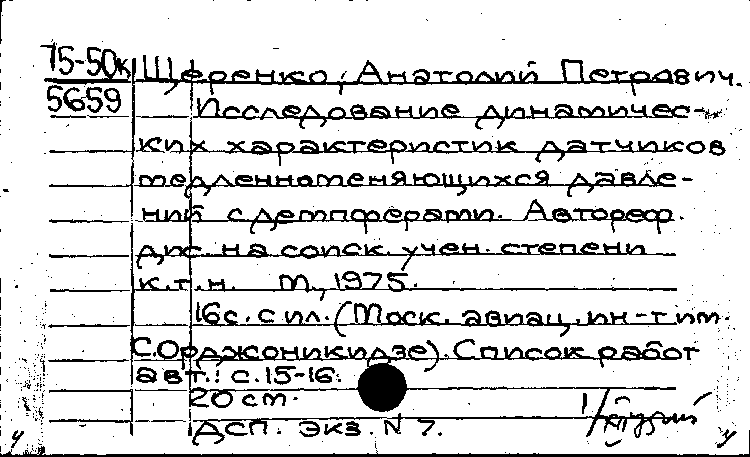 75-50к Щеренко, Анатолий Петрович.
5659 Исследование динамичес-
ких характеристик датчиков
медленноменяющихся давле-
ний с демпферами. Автореф.
дис. на соиск. учен. степени
к.т.н. М., 1975.
16с. с ил. (Моск. авиац. ин-т им.
С.Орджоникидзе). Список работ
авт.: с.15-16.
20 см.
ДСП. экз. N 7.